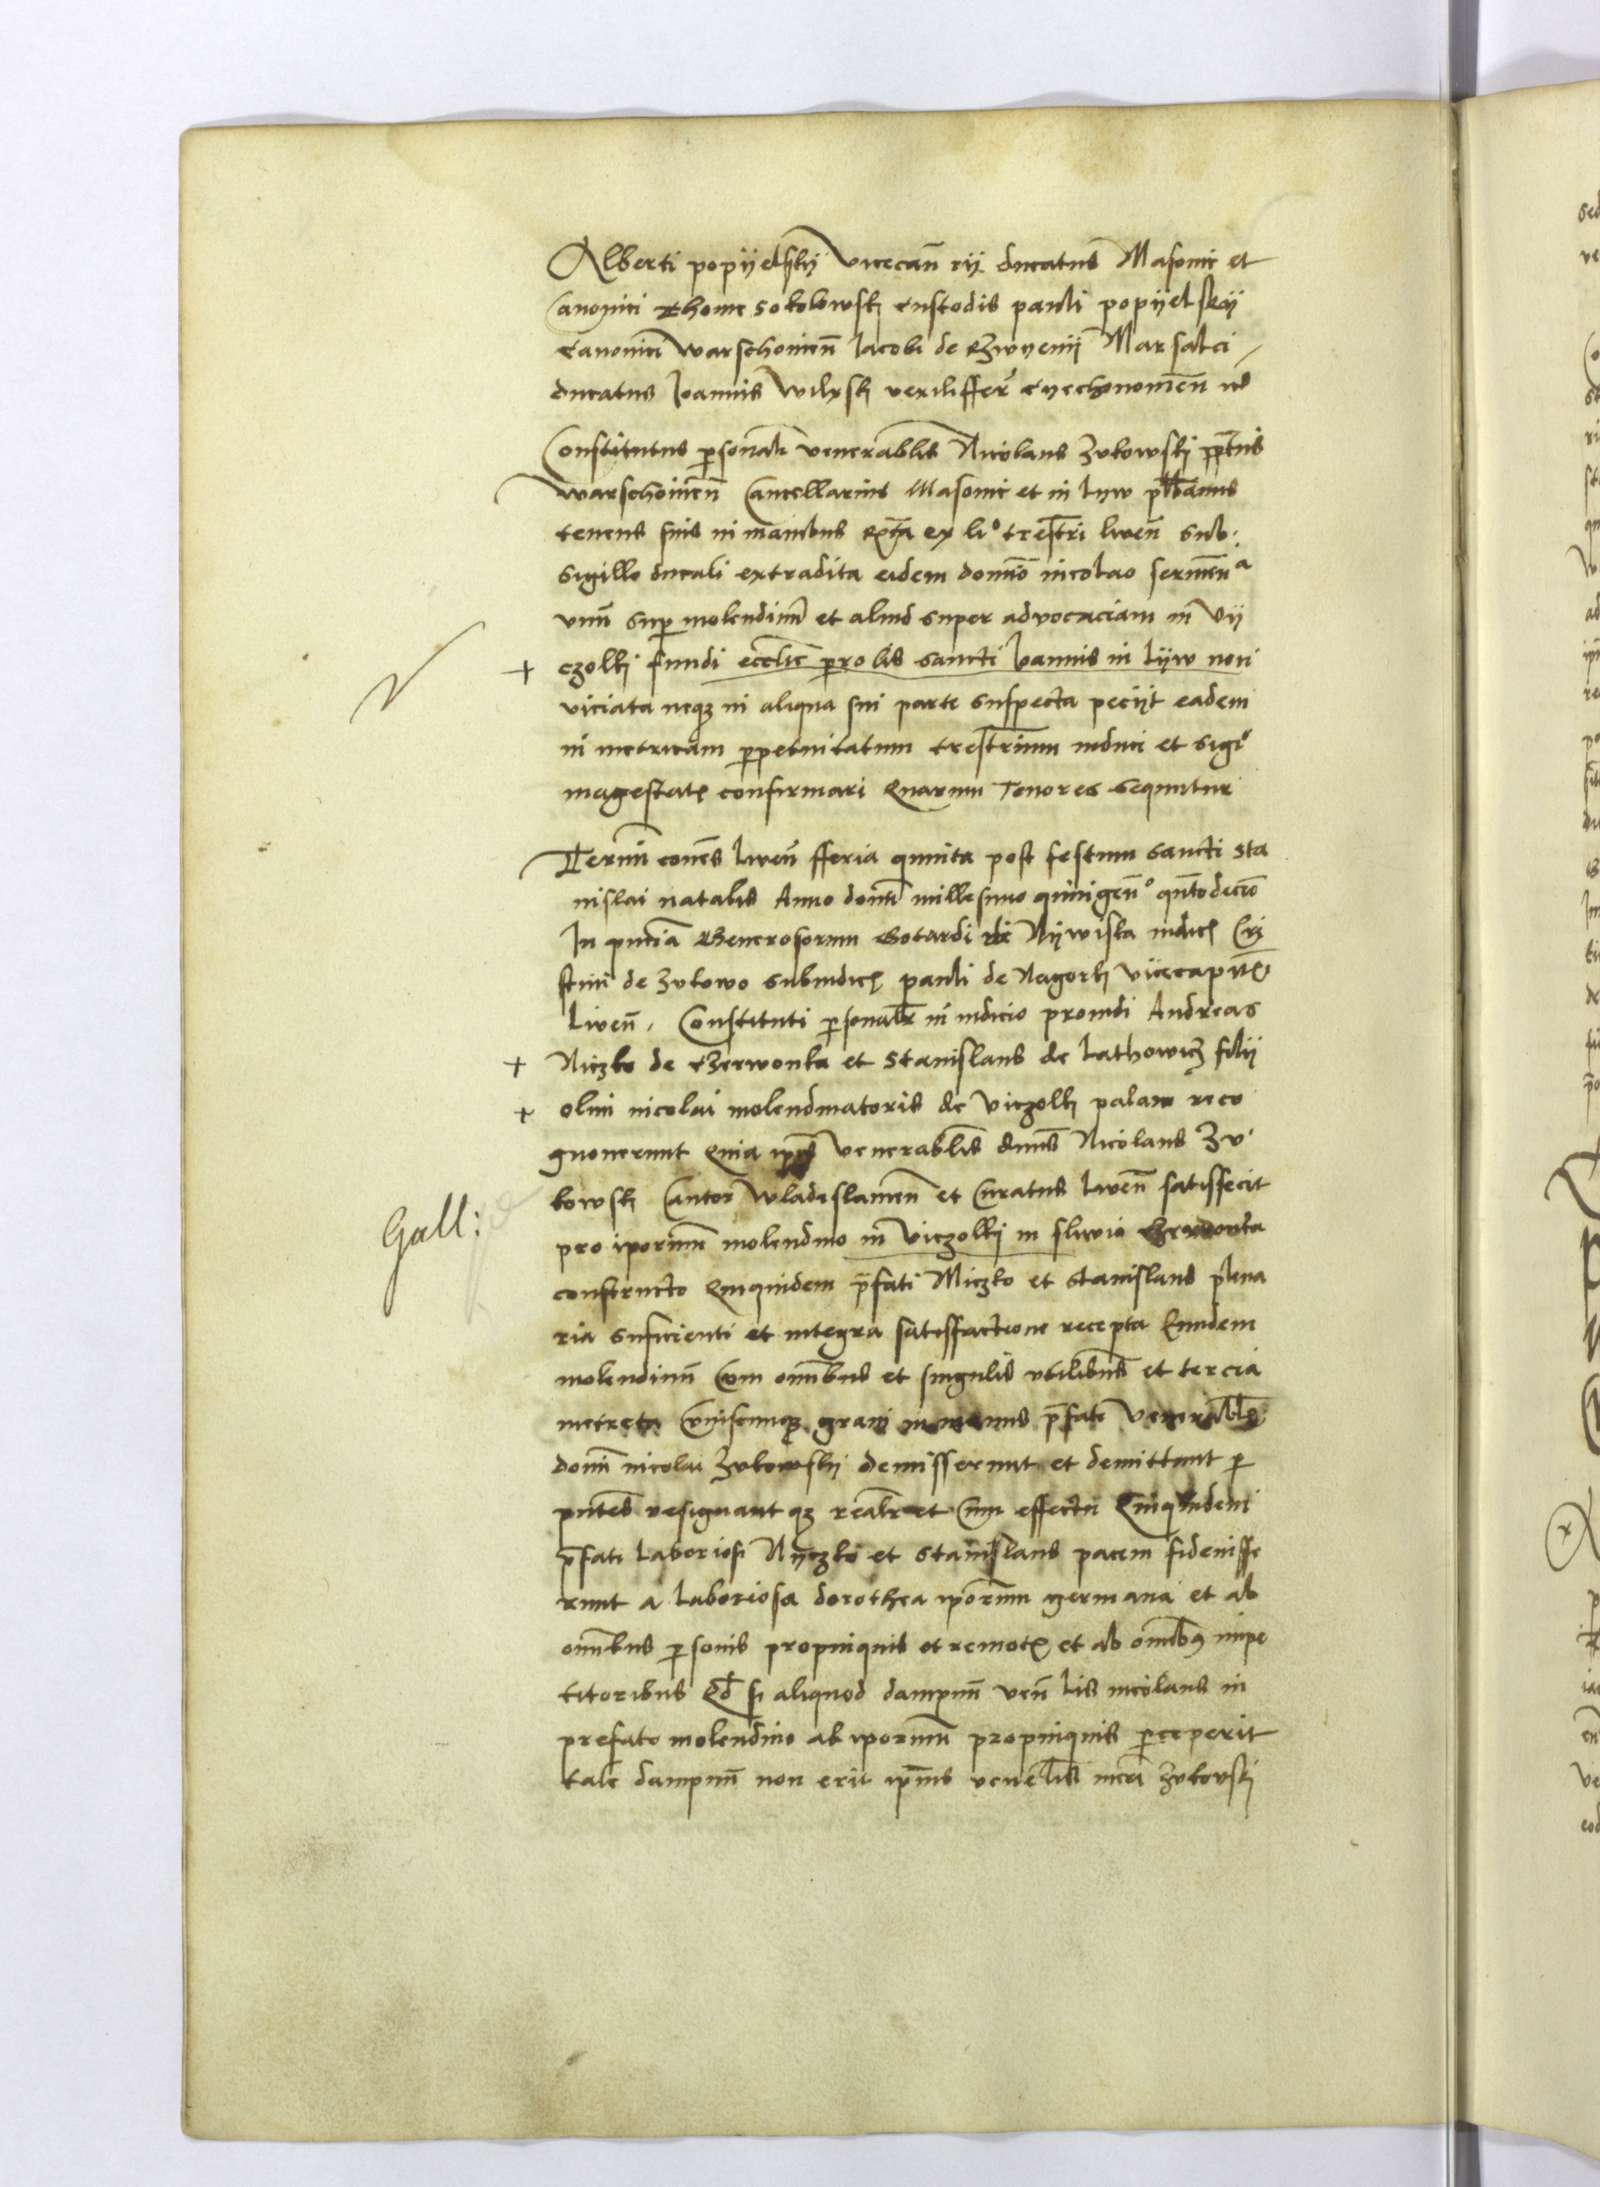 Alberti popyelskÿ vicecan̄rÿ ducatus Masovie et
Canonici Thome Sokolowskj custodis pauli popÿelskÿ
Canonici warschovien̄ Jacobi de Marsalci
ducatus Joannis Wilxskj vexilifferi
Constitutus p̱sonalr venerablis Nicolaus Zukowskj
warschovien̄ Cancellarius Masovie et in Lyw plbanus
tenens suis in manibus ex lio trestri liven̄ sub
Sigillo ducali extradita eidem domino nicolao
vnū sup̱ molendinū et aliud super advocaciam in Vÿ
+ czolki fundi ecclie parolis sancti Joannis in Lÿw non
viciata neqз in aliqua sui parte suspecta peciÿt eadem
in metricam p̱petuitatum trestrium induci et sigio
magestatis confirmari Quarum Tenores sequntur
Termin̄ liven̄ fferia quinta post festum sancti Sta
nislai natalis Anno domi millesimo quingen̄o qntodecimo
In pn̄cia Generosorum Gotardi de Nÿwiska iudicis Cri
stini de Zukowo subiudicis pauli de Nagorkj vicecapitei
Liven̄. Constituti p̱sonalr in iudicio providi Andreas
+ Niczko de Czerwonka et Stanislaus de Lathowicz filÿ
+ olim nicolai molendinatoris de Viczolkj palam reco
gnoverunt Quia ip̄e venerablis dnūs Nicolaus Zu
kowskj Cantor Wladislavien̄ et Curatus liven̄ satisfecit
Gall:
pro ip̄orum molendino in Viczolkj in fluvio Czerwonka
constructo Quiquidem p̄fati Niczko et Stanislaus plena
ria suficienti et integra satisffactione recepta Eundem
molendinū Cum omibus et singulis vtilibus et tercia
metreta Cuiuscunqз grani in manus p̄fati Venerablis
domi nicolai Zukowskÿ demisserunt et demittunt p̱
pn̄tes resignantqз realr et Cum effectu Quiquidem
p̄fati Laboriosi Nyczko et Stanislaus pacem fideiusse
runt a Laboriosa dorothea ip̄orum germana et ab
omibus p̱sonis propinquis et remotis et ab omibus impe
titoribus Qd si aliquod dampnū ven̄lis nicolaus in
prefato molendino ab ip̄orum propinquis p̱ceperit
tale dampnū non erit ip̄ius venelis nicōi Zukovskj